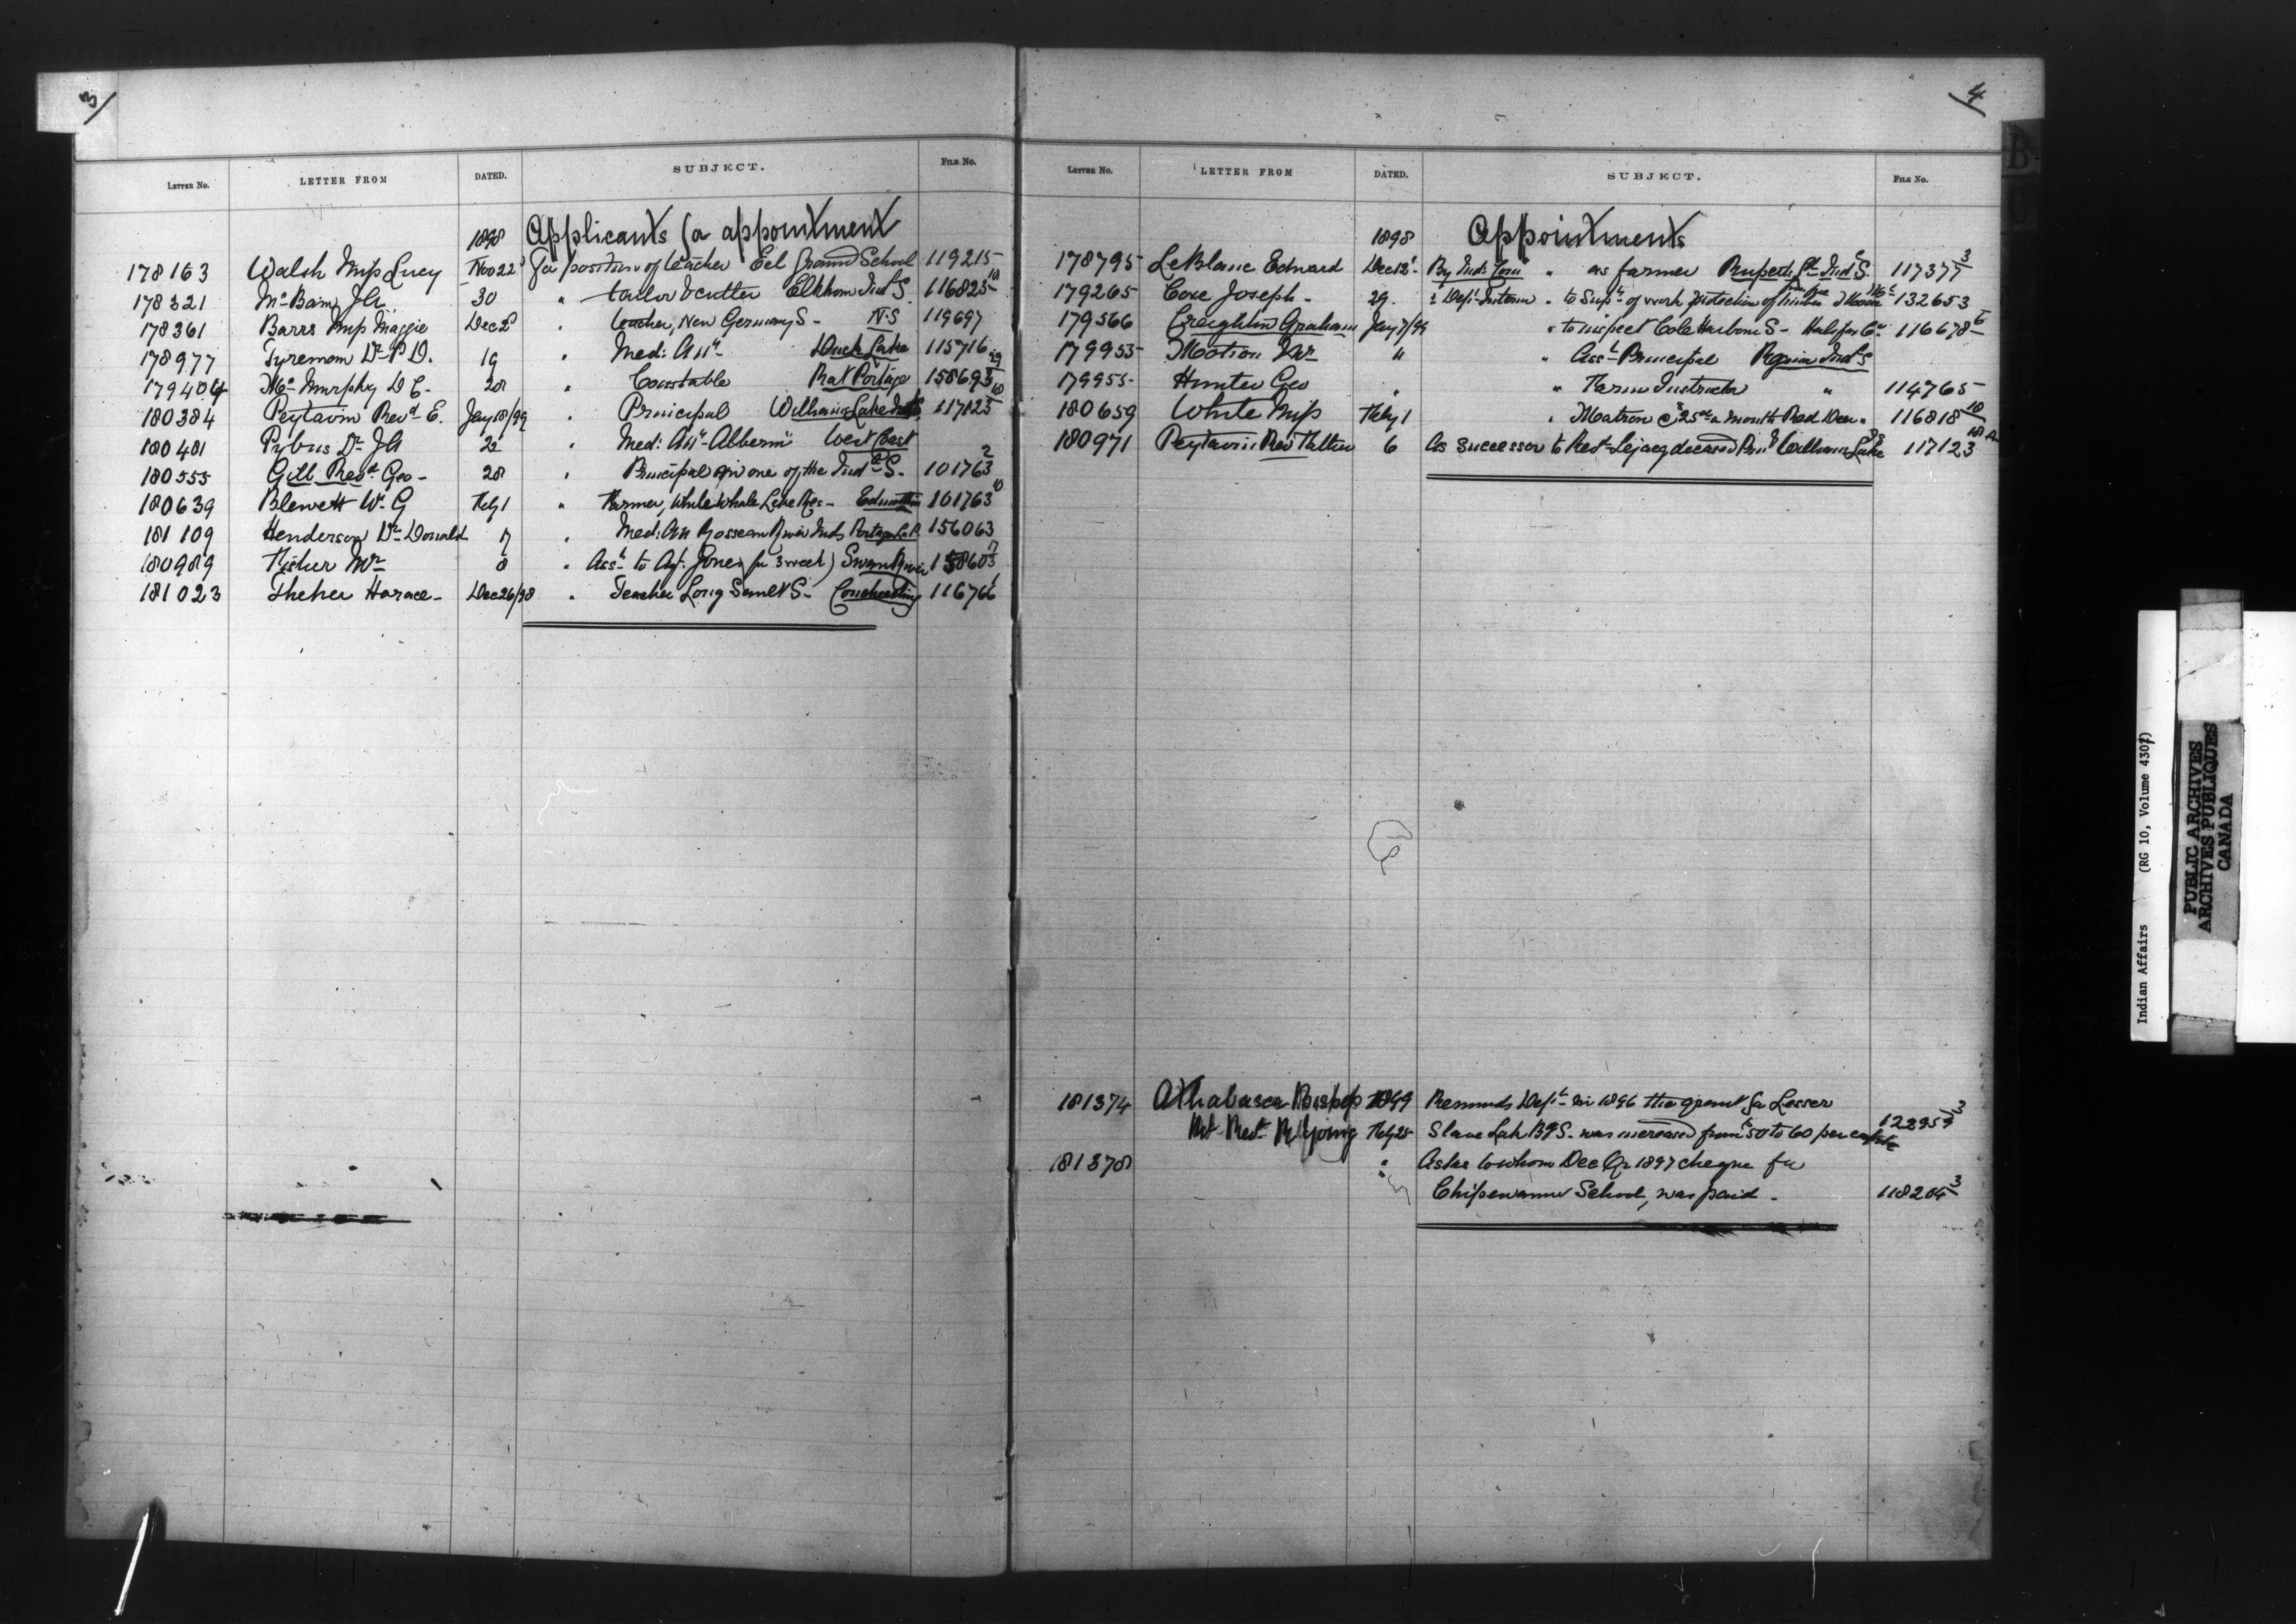 3/
LETTER NO. LETTER FROM DATED. SUBJECT. FILE NO.
1898 Applicants for appointment
178163 Walsh Miss Lucy Nov 22 For position of teacher Eel Ground School 119215
178321 McBain J.A. 30 " tailor & cutter Elkhorn Ind S. 116825 10
178361 Barrs Miss Maggie Dec 2 " teacher, New Germany S- N.S 119697
178977 Tyremom Dr P D. 19 " Med: Att Duck Lake 115716
179404 Mc Murphy D C. 28 " Constable Rat Portage 158695 29
180384 Peytavin Revd E. Jany 18/99 " Principal Williams Lake Ind S. 117123 10
180401 Pybus Dr J A 23 " Med: Att Alberni West Coast
180555 Gill Revd Geo- 28 " Principal in one of the Ind S- 101763 2
180639 Blewett W. G Feby 1 " Farmer, White Whale Lake Res- Edmonton 101763 10
181109 Henderson Dr Donald 7 " Med: Att Rosseau River Inds Portage La P. 156063
180989 Fisher Mr 8 " Asst to Agt. Jones (for 3 weeks) Swan River 158603 17
181023 Horace- Dec 26/98 " Teacher Long S- Couchiching 116766 1
4
LETTER NO. LETTER FROM DATED. SUBJECT. FILE NO.
1898 Appointments
178795 LeBlanc Edward Dec 12 By Ind: Com " as farmer Ruperts Ld Ind S. 117377 3
179265 Coxe Joseph- 29. " Dept Interior " to Supt of work protection of timber 132653
179566 Creighton Graham Jany 7/99 " to inspect Cole Harbour S- Halifax Co. 116678 6
179955 Motion Mr " " Asst Principal Regina Ind S
179955 Hunter Geo " " Farm Instructor " 114765
180659 White Miss Feby 1 " Matron @ $25 00 a month Red Deer " 116818 10
180971 Peytavin Rev Father 6 As successor to Revd Lejacq deceased Prin Williams Lake 117123
181374 Athabasca Bishop 1899 Reminds Dept in 1896 the grant for Lesser
Rt Revd R Young Feby 25 Slave Lake B&S- was increased from $50 to 60 per capita 122959 3
181378 " Asks to whom Dec Qr 1897 cheque for
Chipewyan School, was paid- 118204 3
B
C
Indian Affairs (RG 10, Volume 4307)
PUBLIC ARCHIVES
ARCHIVES PUBLIQUES
CANADA